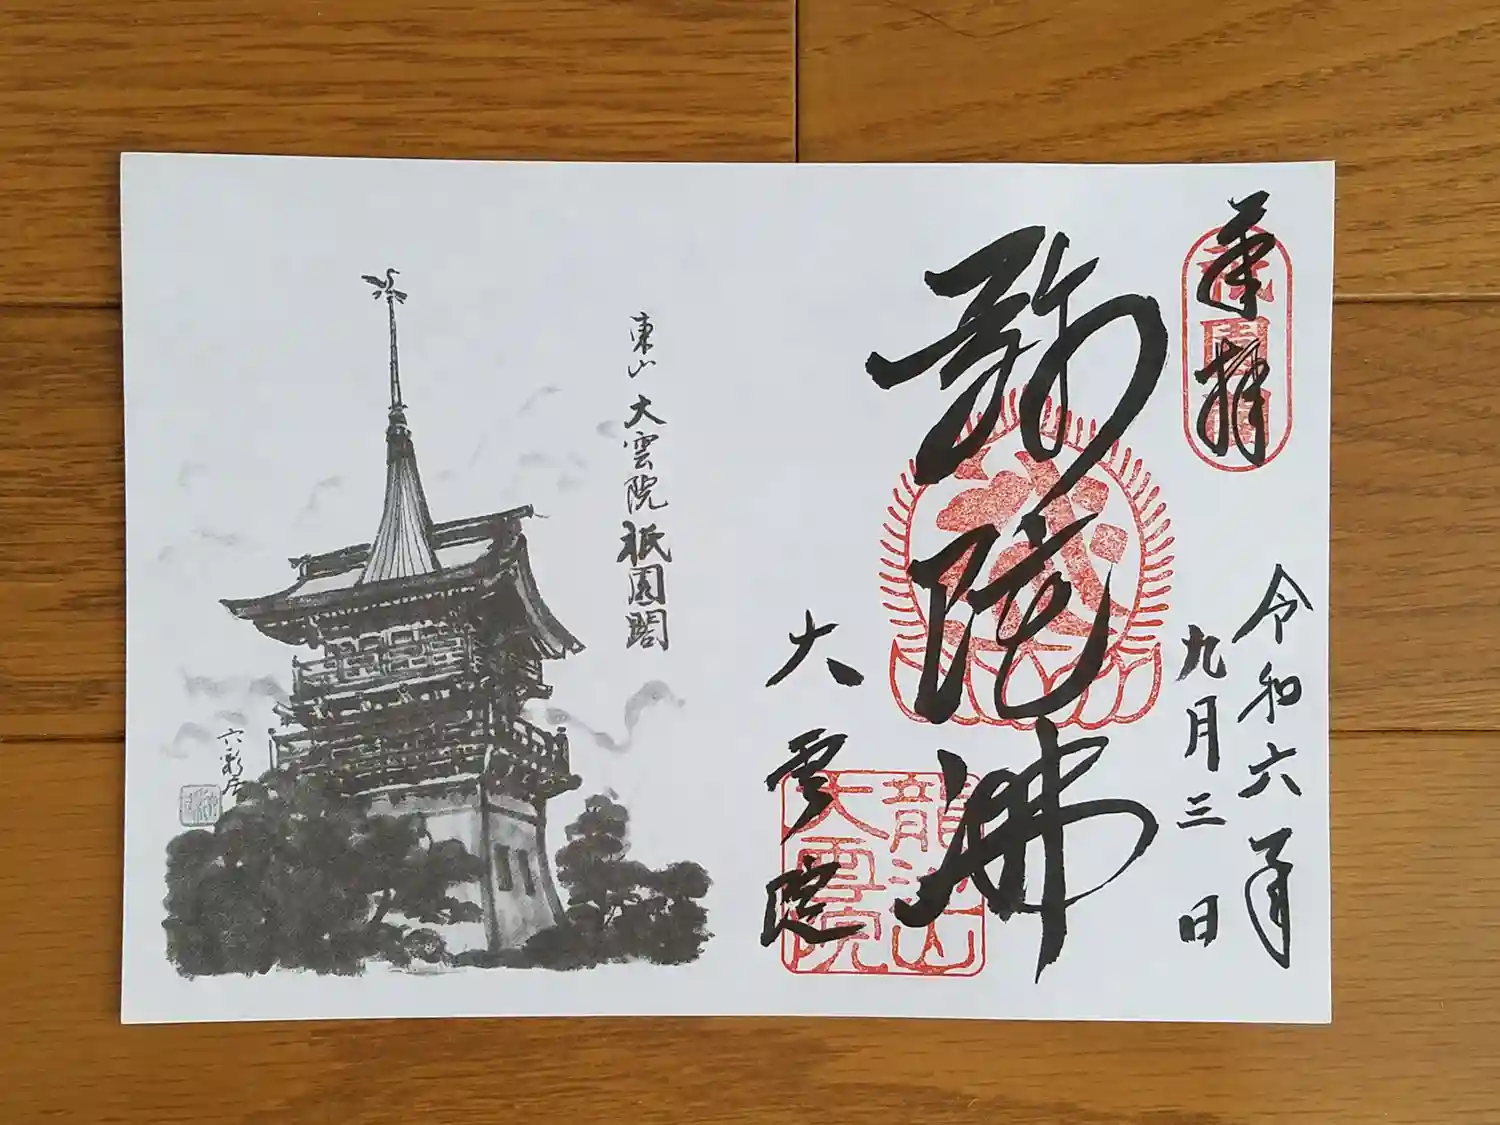 奉拝
祇園閣
令和六年
九月三日
弥陀佛
大雲院
龍池山
大雲院
東山 大雲院 祇園閣